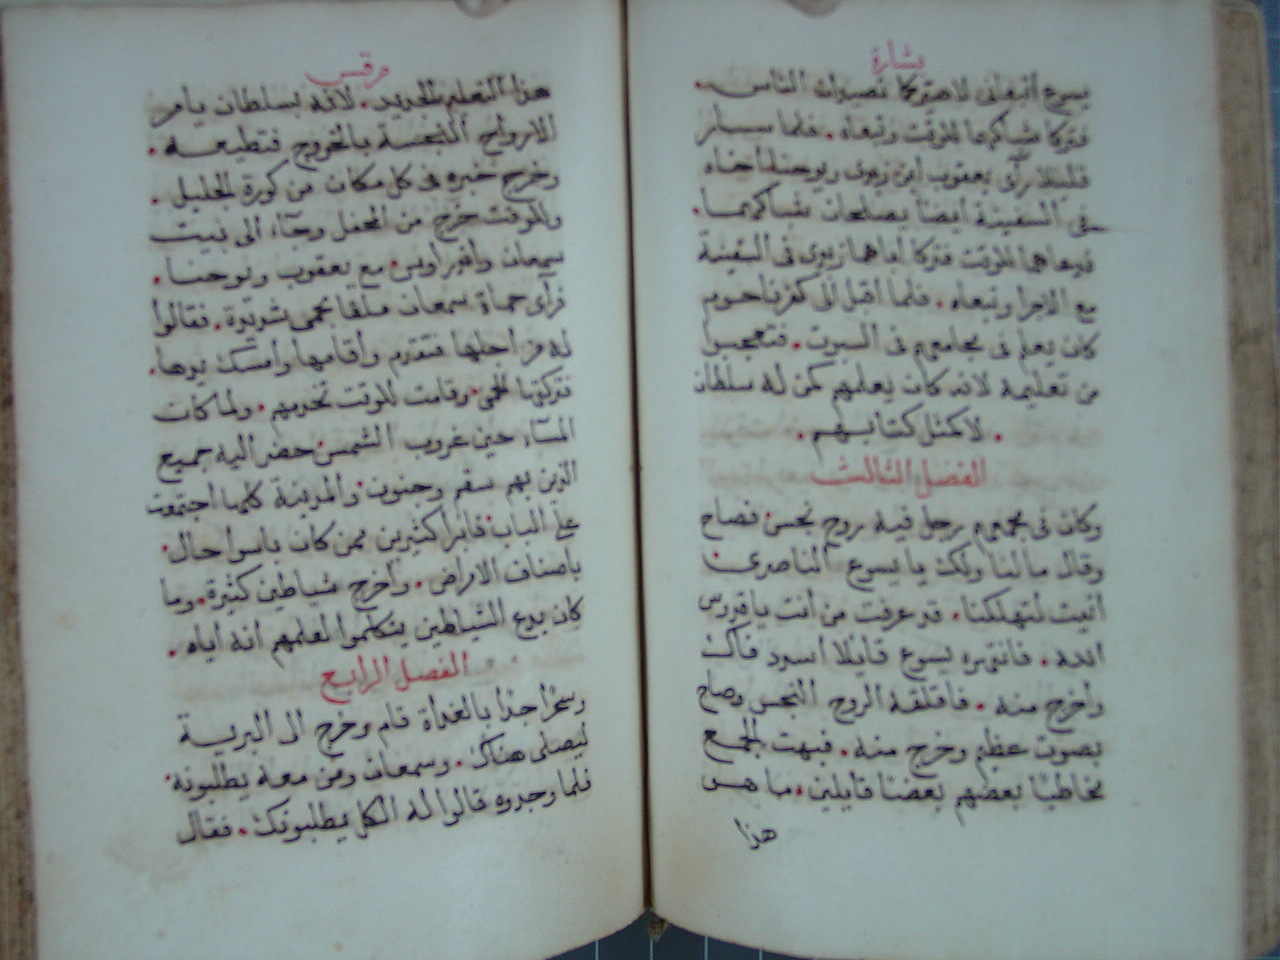 بشارة
يسوع اتبعاني لاصيركما تصيدان الناس.
فتركا شباكهما للوقت وتبعاه. فلما سار
قليلا رأى يعقوب ابن زبدى ويوحنا أخاه
فى السفينة أيضا يصلحان شباكهما.
فدعاهما للوقت فتركا أباهما زبدى فى السفينة
مع الاجرا وتبعاه. فلما اقبل الى كفرناحوم
كان يعلم فى مجامعهم فى السبوت. فتعجبوا
من تعليمه لانه كان يعلمهم كمن له سلطان
. لا كمثل كتابهم.
الفصل الثالث
وكان فى مجمعهم رجل فيه روح نجس فصاح
وقال ما لنا ولك يا يسوع الناصرى
أتيت لتهلكنا. قد عرفت من أنت يا قدوس
الله. فانتهره يسوع قايلا اسدد فاك
واخرج منه. فاقلقه الروح النجس وصاح
بصوت عظيم وخرج منه. فبهت الجمع
مخاطبا بعضهم بعضا قايلين. ما هو
هذا
مرقس
هذا التعليم الجديد. لانه بسلطان يامر
الارواح النجسة بالخروج فتطيعه.
وخرج خبره فى كل مكان من كورة الجليل.
وللوقت خرج من المحفل وجآء الى بيت
سمعان واندراوس مع يعقوب ويوحنا.
فرآى حماة سمعان ملقا بحمى شديدة. فقالوا
له من اجلها فتقدم وأقامها وأمسك يدها.
فتركتها الحمى وقامت للوقت تخدمهم. ولما كان
المسآء حين غروب الشمس حضر اليه جميع
الذين بهم سقم وجنون والمدينة كلها اجتمعت
على الباب فابرا كثيرين ممن كان باسوا حال
باصناف الامراض. وأخرج شياطين كثيرة. وما
كان يدع الشياطين يتكلموا لعلمهم انه اياه.
الفصل الرابع
وسحرا جدا بالغداة قام وخرج الى البرية
ليصلى هناك. وسمعان ومن معه يطلبونه
فلما وجدوه قالوا له الكل يطلبونك. فقال